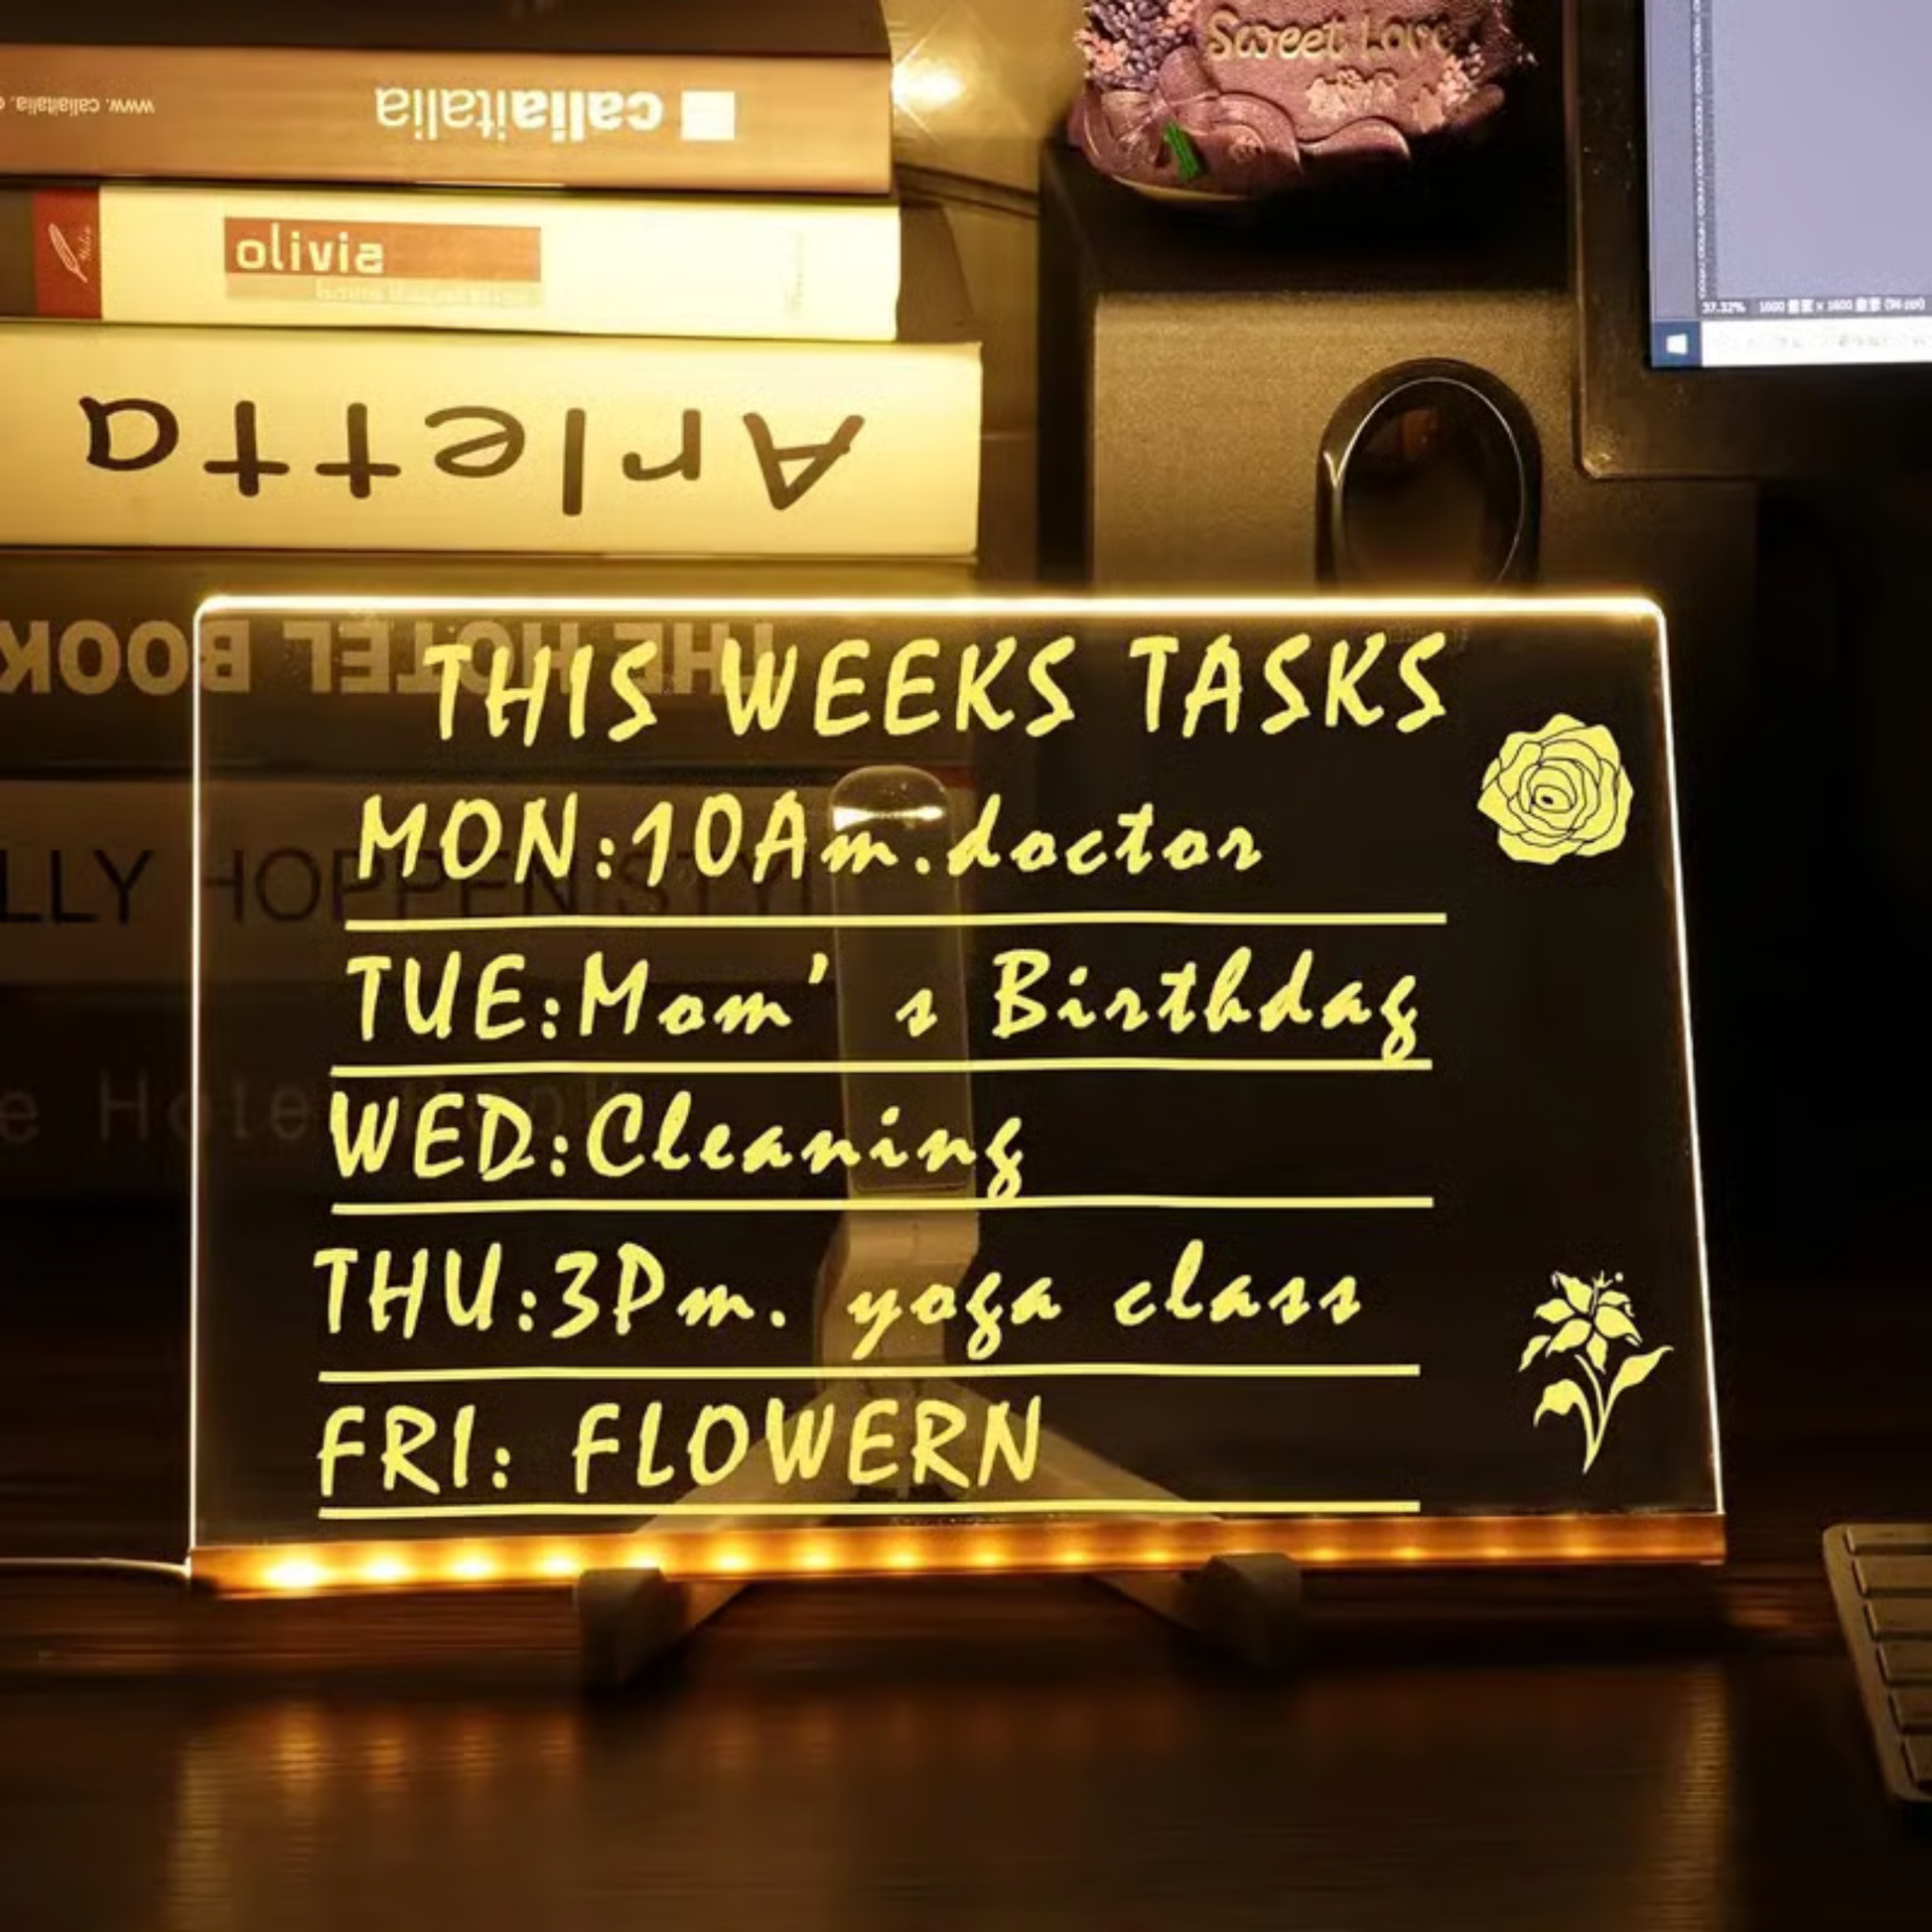 www.caliaitalia.
caliaitalia
olivia
Arletta
THE HOTEL BOOK
LLY HOPPEN STYL
e Hote
Sweet Love
37.32%
THIS WEEKS TASKS
MON:10Am.doctor
TUE:Mom's Birthday
WED:Cleaning
THU:3Pm. yoga class
FRI: FLOWERN